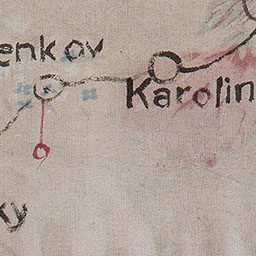 enkov
Karolin
ky